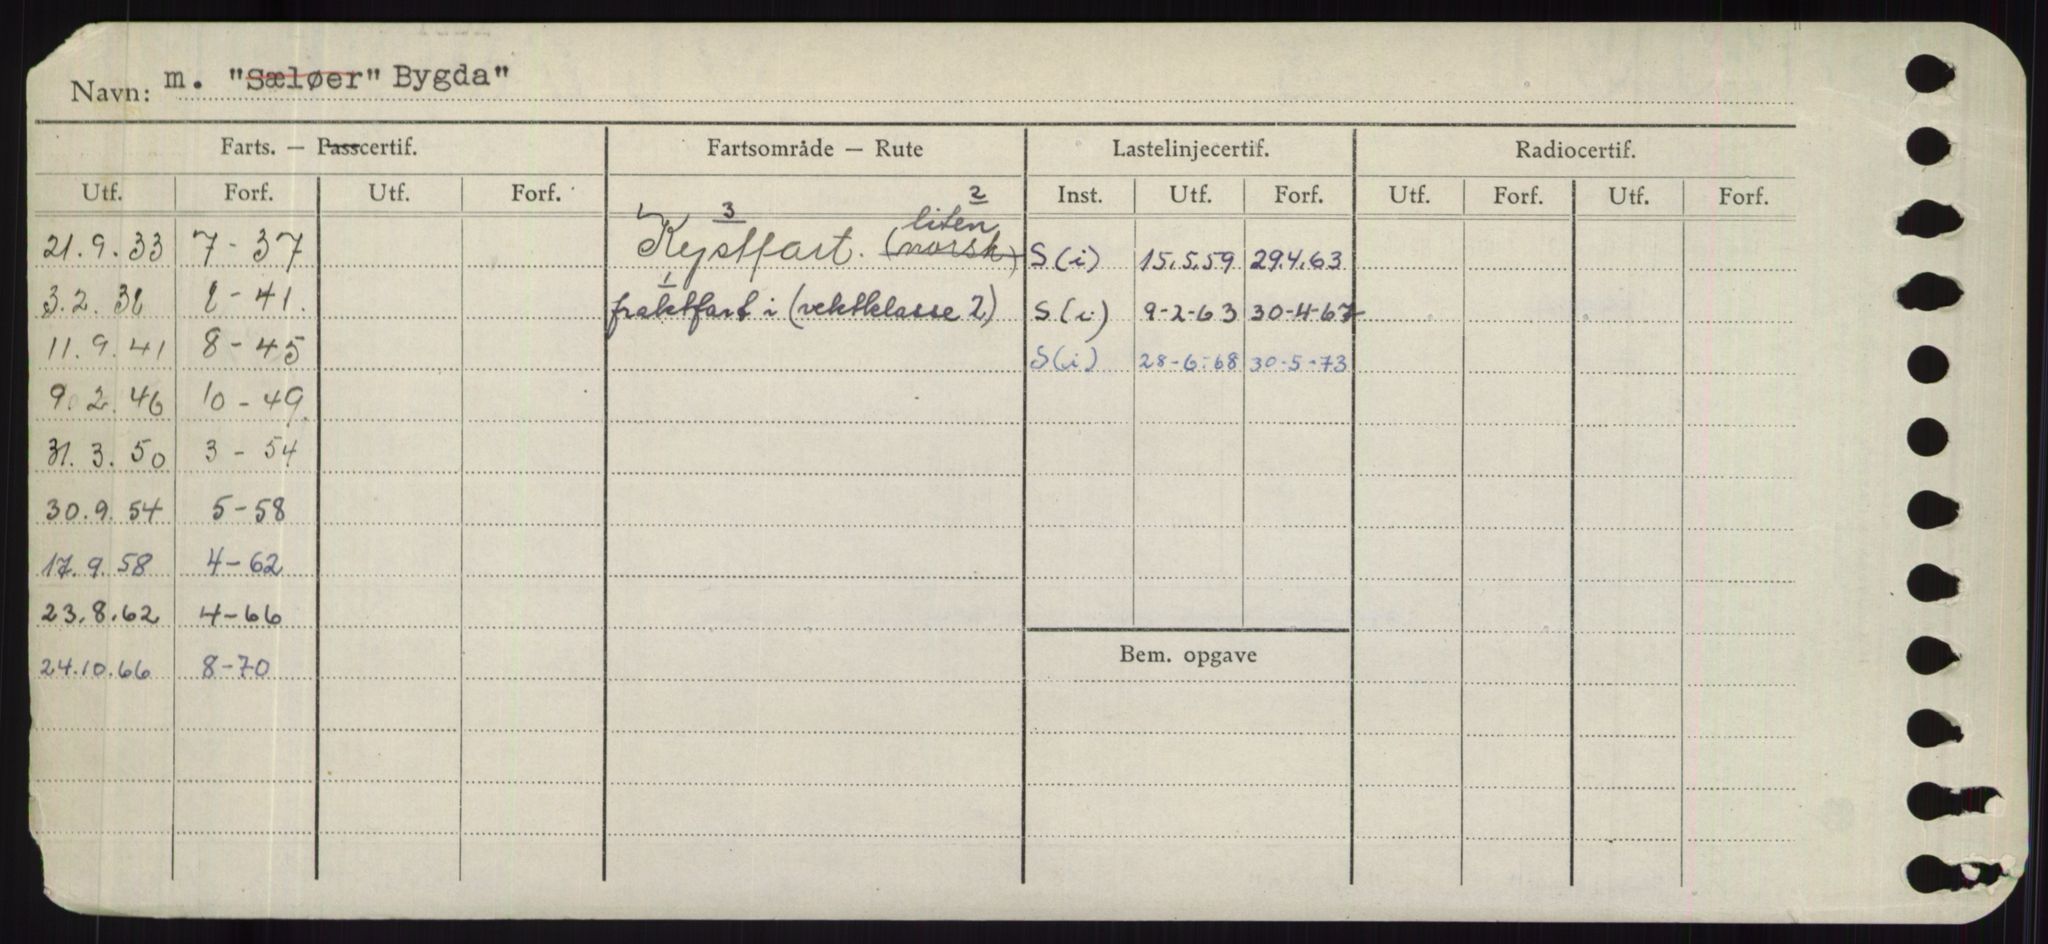 Navn: m. "Sæløer" Bygda"
Farts. — Passcertif. Fartsområde — Rute Lastelinjecertif. Radiocertif.
Utf. Forf. Utf. Forf. Inst. Utf. Forf. Utf. Forf. Utf. Forf.
3 liten 2
21.9.33 7-37 Kystfart. (norsk) S(i) 15.5.59 29.4.63
1
3.2.38 2-41. fraktfart i (vektklasse 2) S(i) 9-2-63 30-4-67
11.9.41 8-45 S(i) 28-6-68 30-5-73
9.2.46 10-49
31.3.50 3-54
30.9.54 5-58
17.9.58 4-62
23.8.62 4-66
Bem. opgave
24.10.66 8-70